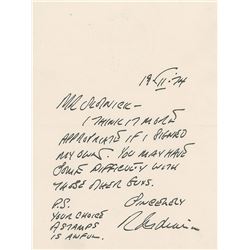 19 II '74
MR
I THINK IT MORE
APPROPRIATE IF I SIGNED
MY OWN. YOU MAY HAVE
SOME DIFFICULTY WITH
THOSE OTHER GUYS.
P.S. SINCERELY
YOUR CHOICE
A STAMPS
IS AWFUL.